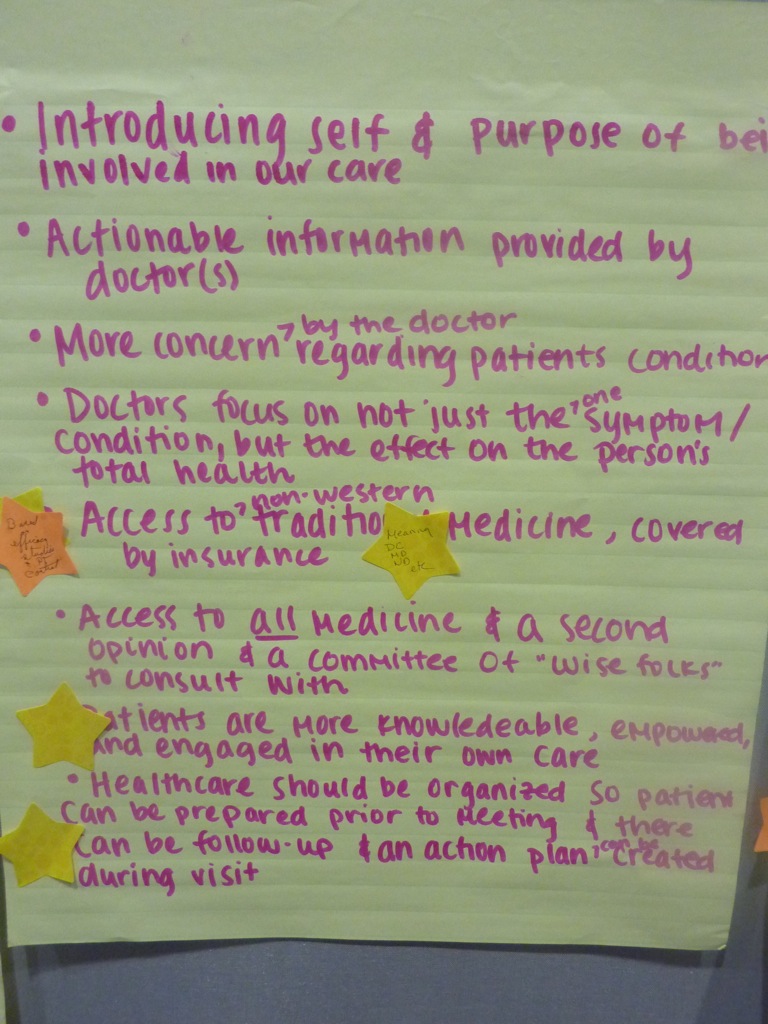 • Introducing self & purpose of bei
involved in our care
• Actionable information provided by
doctor(s)
by the doctor
• More concern regarding patients condition
one
• Doctors focus on not just the symptom/
condition, but the effect on the person's
total health
non-western
Access to traditio Medicine, covered
by insurance
Meaning
DC
MD
ND
etc
• Access to all medicine & a second
opinion & a committee of "wise folks"
to consult with
atients are more knowledeable, empowered,
and engaged in their own care
• Healthcare should be organized so patient
can be prepared prior to meeting & there
can be follow-up & an action plan can be created
during visit